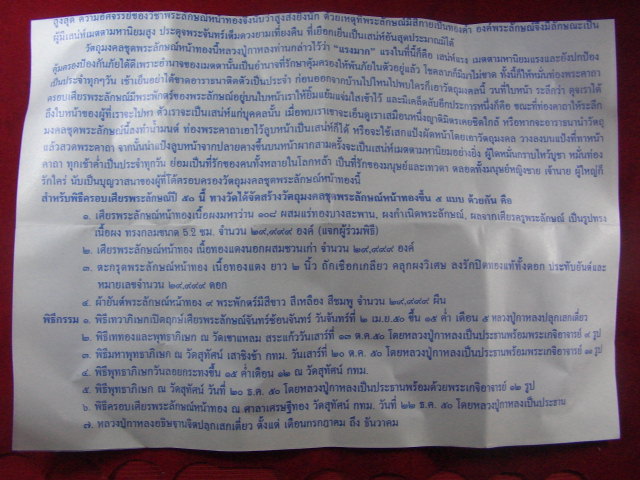 สูงสุด ความอัศจรรย์ของวิชาพระลักษณ์หน้าทองจึงนับว่าสูงส่งยิ่งนัก ด้วยเหตุที่พระลักษณ์มีสีกายเป็นทองคำ องค์พระลักษณ์จึงมีลักษณะเป็น
ผู้มีเสน่ห์เมตตามหานิยมสูง ประดุจพระจันทร์เต็มดวงยามเที่ยงคืน ที่เยือกเย็นเป็นเสน่ห์อันสุดประมาณมิได้
วัตถุมงคลชุดพระลักษณ์หน้าทองนี้หลวงปู่กาหลงท่านกล่าวไว้ว่า "แรงมาก" แรงในที่นี้ก็คือ เสน่ห์แรง เมตตามหานิยมแรงและยังปกป้อง
คุ้มครองป้องกันภัยได้ดีเพราะอำนาจของเมตตานั้นเป็นอำนาจที่รักษาคุ้มครองให้พ้นภัยในตัวอยู่แล้ว โชคลาภก็มีมาไม่ขาด ทั้งนี้ก็ให้หมั่นท่องพระคาถา
เป็นประจำทุกๆวัน เช้าเย็นอย่าได้ขาดอาราธนาติดตัวเป็นประจำ ก่อนออกจากบ้านไปไหนไปพบใครก็เอาวัตถุมงคลนี้ วนที่ใบหน้า ระลึกว่า ดุจเราได้
ครอบเศียรพระลักษณ์มีพระพักตร์ของพระลักษณ์อยู่บนใบหน้าเราให้ยิ้มแย้มแจ่มใสเข้าไว้ และมีเคล็ดลับอีกประการหนึ่งคือ ขณะที่ท่องคาถาให้ระลึก
ถึงใบหน้าของผู้ที่เราจะไปหา ตัวเราจะเป็นเสน่ห์แก่บุคคลนั้น เมื่อพบเราเขาจะเอ็นดูเราเสมือนหนึ่งญาติมิตรเคยชิดใกล้ หรือหากจะอาราธนานำวัตถุ
มงคลชุดพระลักษณ์นี้ลงทำน้ำมนต์ ท่องพระคาถาเอาไว้ลูบหน้าเป็นเสน่ห์ก็ได้ หรือจะใช้เสกแป้งผัดหน้าโดยเอาวัตถุมงคล วางลงบนแป้งที่ทาหน้า
แล้วสวดพระคาถา จากนั้นนำแป้งลูบหน้าจากปลายคางขึ้นบนหน้าผากสามครั้งจะเป็นเสน่ห์เมตตามหานิยมอย่างยิ่ง ผู้ใดหมั่นกราบไหว้บูชา หมั่นท่อง
คาถา ทุกเช้าค่ำเป็นประจำทุกวัน ย่อมเป็นที่รักของคนทั้งหลายในโลกหล้า เป็นที่รักของมนุษย์และเทวดา ตลอดทั้งมนุษย์หญิงชาย เจ้านาย ผู้ใหญ่ก็
รักใคร่ นับเป็นบุญวาสนาของผู้ที่ได้ครอบครองวัตถุมงคลชุดพระลักษณ์หน้าทองนี้
สำหรับพิธีครอบเศียรพระลักษณ์ปี ๕๐ นี้ ทางวัดได้จัดสร้างวัตถุมงคลชุดพระลักษณ์หน้าทองขึ้น ๕ แบบ ด้วยกัน คือ
๑. เศียรพระลักษณ์หน้าทองเนื้อผงมหาว่าน ๑๐๘ ผสมแร่ทองบางสะพาน, ผงกำเนิดพระลักษณ์, ผลจากเศียรครูพระลักษณ์ เป็นรูปทรง
เนื้อผง ทรงกลมขนาด ๕.๒ ซม. จำนวน ๒๙,๙๙๙ องค์ (แจกผู้ร่วมพิธี)
๒. เศียรพระลักษณ์หน้าทอง เนื้อทองแดงนอกผสมชนวนเก่า จำนวน ๒๙,๙๙๙ องค์
๓. ตะกรุดพระลักษณ์หน้าทอง เนื้อทองแดง ยาว ๒ นิ้ว ถักเชือกเกลียว คลุกผงวิเศษ ลงรักปิดทองแท้ทั้งดอก ประทับยันต์และ
หมายเลขจำนวน ๒๙,๙๙๙ ดอก
๔. ผ้ายันต์พระลักษณ์หน้าทอง ๙ พระพักตร์มีสีขาว สีเหลือง สีชมพู จำนวน ๒๙,๙๙๙ ผืน
พิธีกรรม ๑. พิธีเทวาภิเษกเปิดฤกษ์เศียรพระลักษณ์จันทร์ซ้อนจันทร์ วันจันทร์ที่ ๒ เม.ย.๕๐ ขึ้น ๑๕ ค่ำ เดือน ๕ หลวงปู่กาหลงปลุกเสกเดี่ยว
๒. พิธีเททองและพุทธาภิเษก ณ วัดเขาแหลม สระแก้ววันเสาร์ที่ ๑๓ ต.ค. ๕๐ โดยหลวงปู่กาหลงเป็นประธานพร้อมพระเกจิอาจารย์ ๙ รูป
๓. พิธีมหาพุทธาภิเษก ณ วัดสุทัศน์ เสาชิงช้า กทม. วันเสาร์ที่ ๒๐ ต.ค. ๕๐ โดยหลวงปู่กาหลงเป็นประธานพร้อมพระเกจิอาจารย์ ๑๐ รูป
๔. พิธีพุทธาภิเษกวันลอยกระทงขึ้น ๑๕ ค่ำเดือน ๑๒ ณ วัดสุทัศน์ กทม.
๕. พิธีพุทธาภิเษก ณ วัดสุทัศน์ วันที่ ๒๐ ธ.ค. ๕๐ โดยหลวงปู่กาหลงเป็นประธานพร้อมด้วยพระเกจิอาจารย์ ๑๒ รูป
๖. พิธีครอบเศียรพระลักษณ์หน้าทอง ณ ศาลาเศรษฐีทอง วัดสุทัศน์ กทม. วันที่ ๒๒ ธ.ค. ๕๐ โดยหลวงปู่กาหลงเป็นประธาน
๗. หลวงปู่กาหลงอธิษฐานจิตปลุกเสกเดี่ยว ตั้งแต่ เดือนกรกฎาคม ถึง ธันวาคม